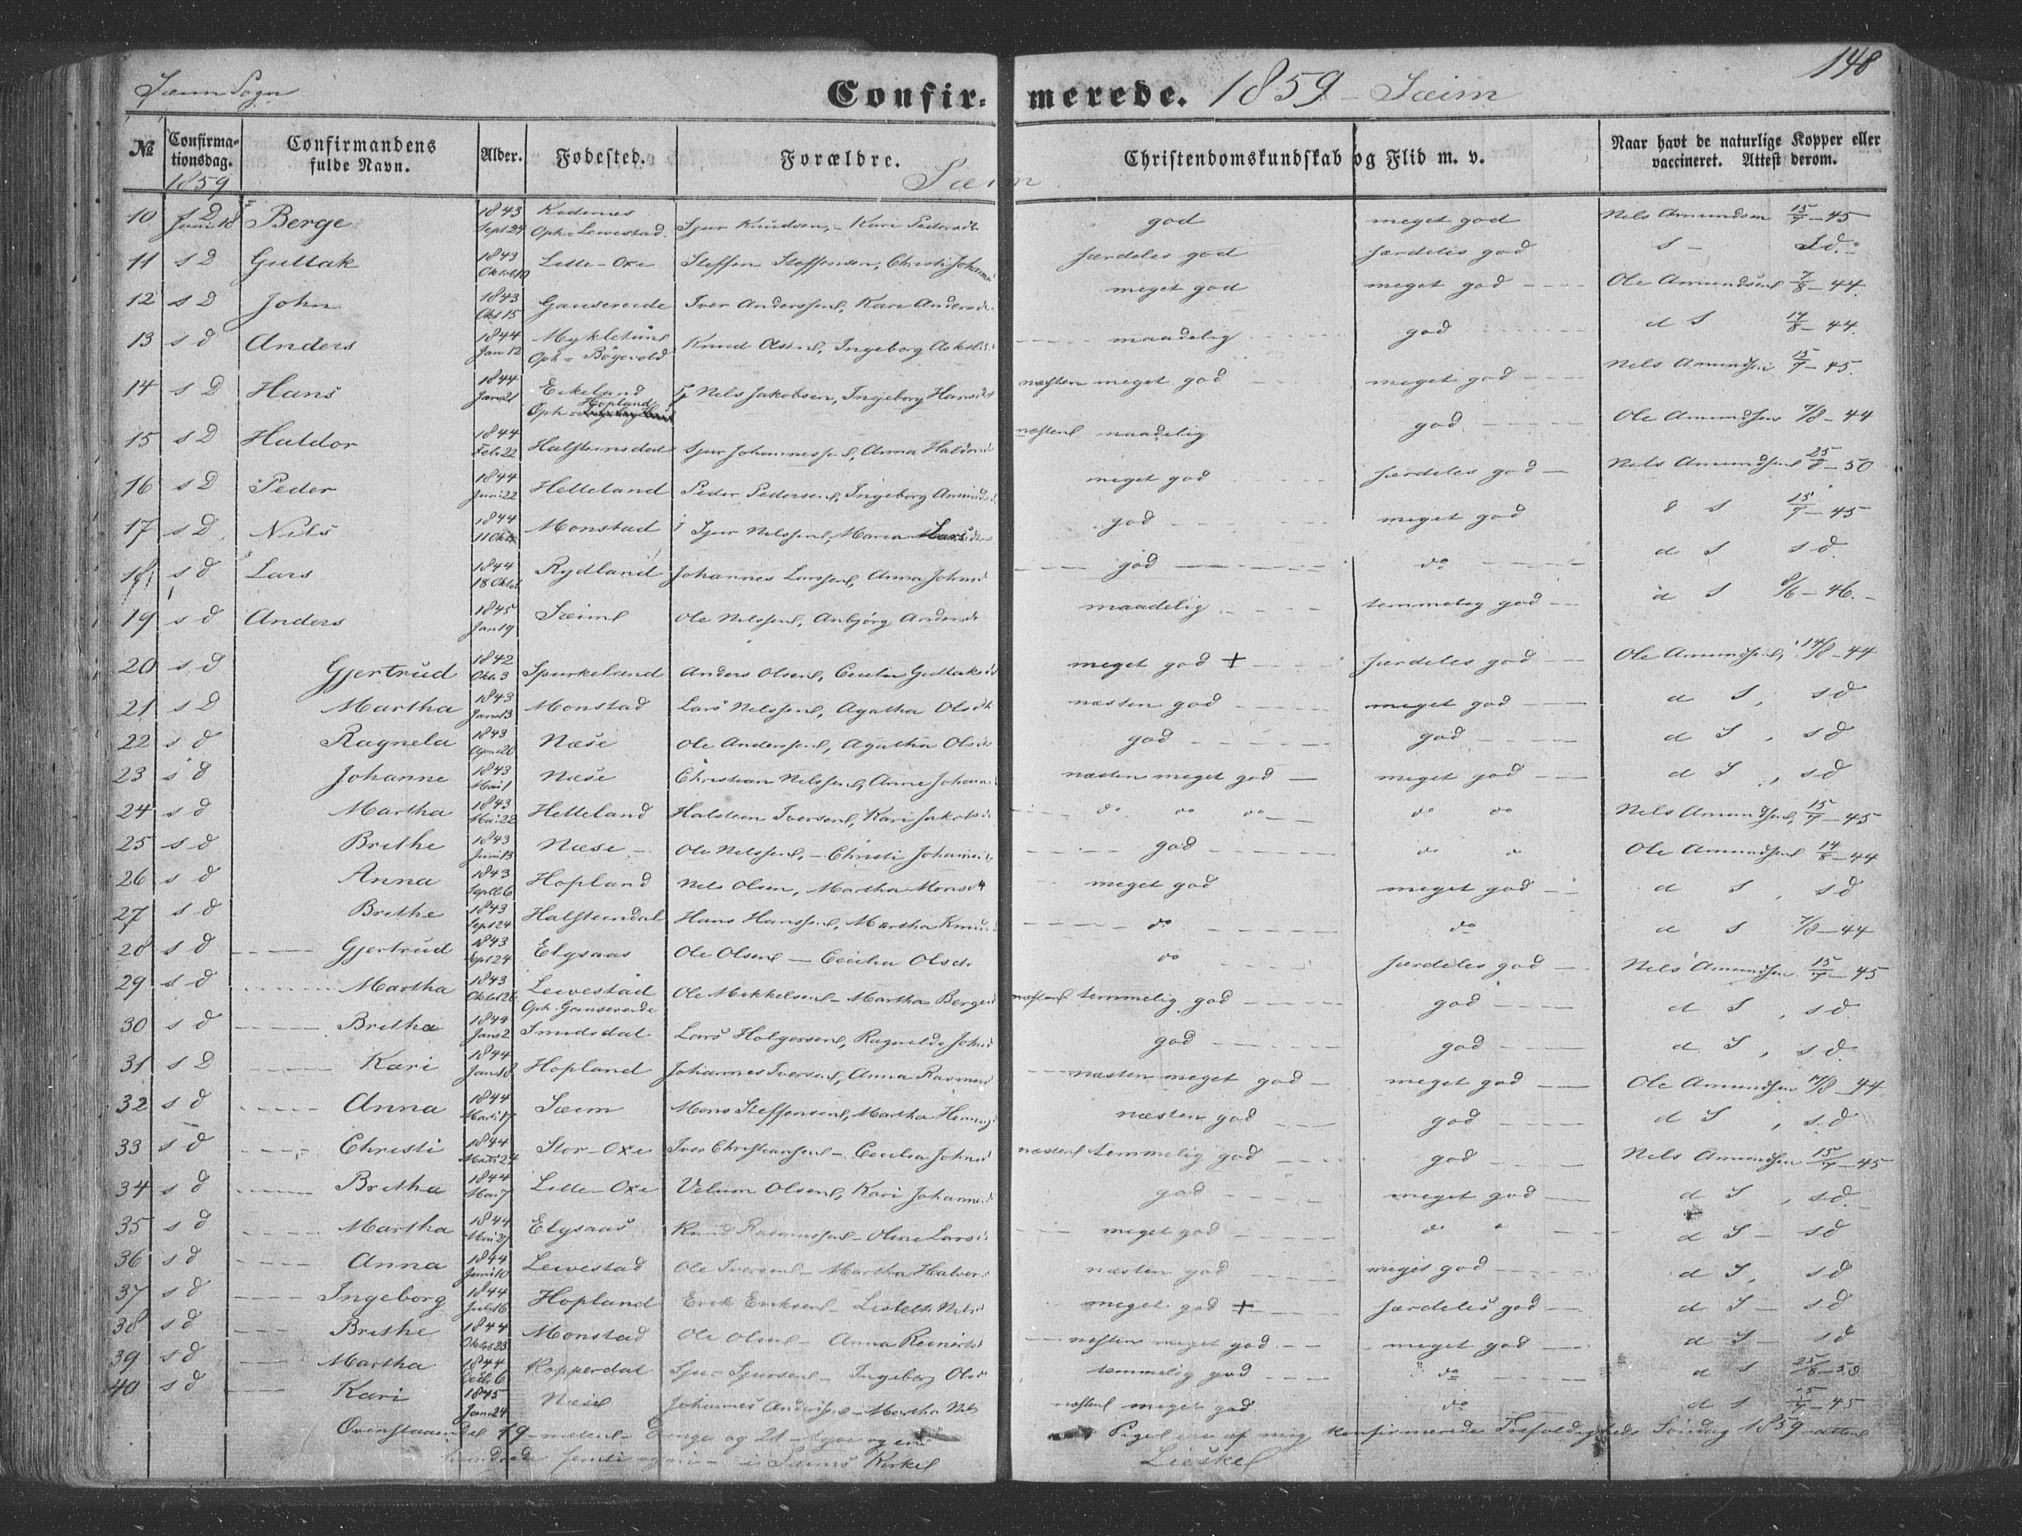 Sæim Sogn
Confir= merede. 1859 – Sæim
148
№ Confirma-tionsdag. Confirmandens fulde Navn. Alder. Fødested. Forældre. Christendomskundskab og Flid m. v. Naar havt de naturlige Kopper eller vaccineret. Attest derom.
1859 Sæim
10 s D Juni 18 Berge 1843 Sept 24 Oph. Lewestad. Sjur Knudsen, – Kari Pedersdt god meget god Nels Amundsen 15/7 – 45
11 s D Guttak 1843 Oktob 10 Litle – Oxe Steffen Steffensen, Christi Johann særdeles god særdeles god s – Id.
12 s D John 1843 Okt 15 Gansereide Iver Anderssen, Kari Andersd meget god meget god Ole Amundsen 7/8 – 44.
13 s d Anders 1844 Jan 12 Mykletun Oph – Bögevold Knud Olsen, Ingeborg maadelig god d S 14/8 – 44.
14 s D Hans 1844 Janu 21 Eikeland Oph Hopland Nels Jakobsen, Ingeborg Hansdt næsten meget god meget god Nels Amundsen 15/7 – 45.
15 s D Haldor 1844 Febr 22 Halsteinsdal Sjur Johannessen, Anna Haldorsd næsten maadelig god Ole Amundsen 7/8 – 44
16 s D Peder 1844 Juni 22 Helleland Peder Pedersen, Ingeborg Amund meget god særdeles god Nels Amundsen 25/8 – 50
17 s D Nils 1844 11 Okto Monstad Sjur Nelssen, Maria Larsdtr god meget god d S 15/7 – 45
18 s d Lars 1844 18 Oktob Rydland Johannes Larssen, Anna Johnsd god do d S s d
19 s d Anders 1845 Jan 19 Sæim Ole Nelssen, Anbjørg Andersd maadelig temmeleg god d S 8/6 – 46.
20 s d Gjertrud 1842 Okt. 3 Spurkeland Anders Olsen, Cecilia Guttaksd meget god + særdeles god Ole Amundsen, 14/8 – 44
21 s D Martha 1843 Janu 13 Monstad Lars Nelssen, Agatha Olsdt næsten god meget god d S, s d
22 s d Ragnela 1843 April 20 Næse Ole Anderssen, Agatha Olsd god god d S, s d
23 s d Johanne 1843 Mai 1 Næse Christian Nelssen, Anne Johann næsten meget god meget god d S, s d
24 s d Martha 1843 Mai 22 Helleland Halsteen Iversen, Kari Jakobsd do do do do do Nels Amundsen, 15/7 – 45
25 s d Brithe 1843 Juni 13 Næse Ole Nelssen, – Christi Johannes god do Ole Amundsen 14/8 – 44
26 s d Anna 1843 Septb 6 Hopland Nels Olsen, Martha Monsdt meget god meget god d S, s d
27 s d Brithe 1843 Sept 24 Halsteindal Hans Hanssen, Martha Knud do do d S 7/8 – 44
28 s d Gjertrud 1843 Sept 24 Elgsaas Ole Olsen – Cecilia Olsdt do særdeles god Nels Amundsen 15/7 – 45
29 s d Martha 1843 Oktob 26 Lewestad Oph. Gansereide Ole Mekkelsen – Martha Berges næsten temmelig god god d S, s d
30 s d Britha 1844 Janu 2 Smidsdal Lars Holgersen, Ragnilde Johnsd god god d S, s d
31 s D Kari 1844 Janu 18 Hopland Johannes Iversen, Anna Rasmus næsten meget god meget god Ole Amundsen 14/8 – 44
32 s d Anna 1844 Marts 17 Sæim Mons Steffensen, Martha Heming næsten god god d S, s d
33 s d Christi 1844 Marts 24 Stor – Oxe Iver Christiansen – Cecilia Johnsd næsten temmelig god god Nels Amundsen 15/7 – 45
34 s d Britha 1844 Mai 7 Litle – Oxe Velum Olsen, Kari Johannesd god meget god d S, s d
35 s d Martha 1844 Mai 27 Elgsaas Knud Rasmussen – Oline Larsd meget god do d S – s d
36 s d Anna 1844 Juni 10 Lewestad Ole Iversen – Martha Halvors næsten god meget god d S, s d
37 s d Ingeborg 1844 Juli 16 Hopland Erik Eriksen – Lisbeth Nelsd meget god + særdeles god d S – s d
38 s d Brithe 1844 Oktob 23 Monstad Ole Olsen – Anna Reinerts næsten meget god meget god d S – s d
39 s d Martha 1844 Kopperdal Sjur Sjursen – Ingeborg Olsd temmelig god do d S 25/8 – 50
40 s d Kari 1845 Janu 24 Næse Johannes Anderssen – Martha Nels næsten meget god do d S 15/7 – 45
Ovenstaaende 19 – nitten – Drenge og 21 – tyve og een – Piger ere af mig konfirmerede Trefoldigheds Søndag 1859 – atten
hundrede femti og ni – i Sæims Kirke